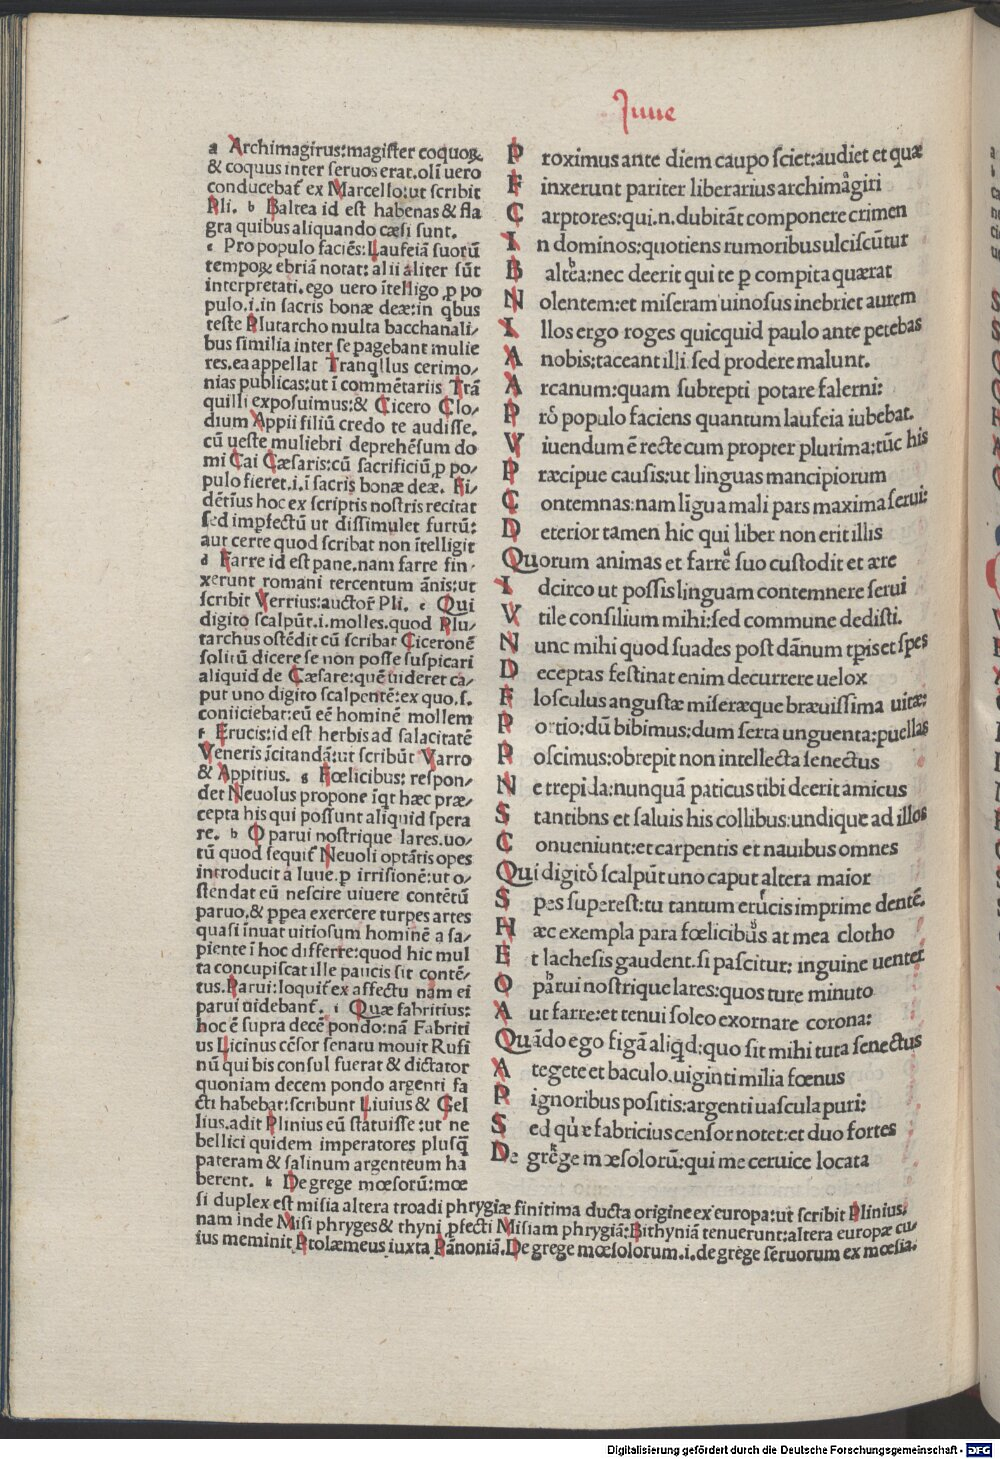 Iuue
a Archimagirus:magiſter coquoꝝ
& coquus inter ſeruos erat.olī uero
conducebat̄ ex Marcello:ut ſcribit
Pli. b Baltea id eſt habenas & fla
gra quibus aliquando cæſi ſunt.
c Pro populo faciēs:Laufeiā ſuorū
tempoꝝ ebriā notat: alii aliter sūt
interpretati.ego uero ītelligo ꝓ po
pulo.i.in ſacris bonæ deæ:in qbus
teſte Plutarcho multa bacchanali/
bus ſimilia inter ſe pagebant mulie
res.ea appellat Tranqllus cerimo/
nias publicas:ut ī commētariis Trā
quilli expoſuimus:& Cicero Clo/
dium Appii filiū credo te audiſſe.
cū ueſte muliebri deprehēſum do
mi Cai Cæſaris:cū ſacrificiū ꝓ po/
pulo fieret.i.ī ſacris bonæ deæ. Fi/
dētius hoc ex ſcriptis noſtris recitat
ſed imꝑfectū ut diſſimulet furtū:
aut certe quod ſcribat non ītelligit
d Farre id est pane.nam farre fin/
xerunt romani tercentum ānis:ut
ſcribit Verrius:auctor̄ Pli. e Qui
digito ſcalpūt.i.molles.quod Plu/
tarchus oſtēdit cū ſcribat Ciceronē
ſolitū dicere ſe non poſſe ſuſpicari
aliquid de Cæſare:quē uideret ca/
put uno digito ſcalpentē:ex quo.ſ.
coniiciebat:eū eē hominē mollem
f Erucis:id eſt herbis ad ſalacitatē
Veneris īcitandā:ut ſcribūt Varro
& Appitius. g Fœlicibus: reſpon/
det Neuolus propone īqt hæc præ/
cepta his qui poſſunt aliquid ſpera
re. h O parui noſtrique lares.uo/
tū quod ſequit̄ Neuoli optātis opes
introducit a Iuue.ꝓ irriſionē:ut o/
ſtendat eū neſcire uiuere contētū
paruo.& ꝓpea exercere turpes artes
quaſi inuat uitioſum hominē a ſa/
piente ī hoc differre:quod hic mul
ta concupiſcat ille paucis ſit contē/
tus.Parui:loquit̄ ex affectu nam ei
parui uidebant̄. i Quæ fabritius:
hoc ē ſupra decē pondo:nā Fabriti
us Licinus cēſor ſenatu mouit Rufi
nū qui bis conſul fuerat & dictator
quoniam decem pondo argenti fa
cti habebat:ſcribunt Liuius & Gel
lius.adit Plinius eū ſtatuiſſe:ut ne
bellici quidem imperatores pluſq̄
pateram & ſalinum argenteum ha
berent. k De grege mœſorū:mœ
P roximus ante diem caupo ſciet:audiet et quæ
F inxerunt pariter liberarius archimagiri
C arptores:qui.n.dubitāt componere crimen
I n dominos:quotiens rumoribus ulciſcūtur
B altea:nec deerit qui te ꝑ compita quærat
N olentem:et miſeram uinoſus inebriet aurem
I llos ergo roges quicquid paulo ante petebas
A nobis:taceant illi ſed prodere malunt.
A rcanum:quam ſubrepti potare falerni:
P ro populo faciens quantum laufeia iubebat.
V iuendum ē recte cum propter plurima:tūc his
P ræcipue cauſis:ut linguas mancipiorum
C ontemnas:nam līgua mali pars maxima ſerui:
D eterior tamen hic qui liber non erit illis
Quorum animas et farre ſuo cuſtodit et ære
I dcirco ut poſſis linguam contemnere ſerui
V tile conſilium mihi:ſed commune dediſti.
N unc mihi quod ſuades poſt dānum tꝑis et ſpes
D eceptas feſtinat enim decurrere uelox
F loſculus anguſtæ miſeræque bræuiſſima uitæ:
P ortio:dū bibimus:dum ſerta unguenta:puellas
P oſcimus:obrepit non intellecta ſenectus
N e trepida:nunquā paticus tibi deerit amicus
S tantibns et ſaluis his collibus:undique ad illos
C onueniunt:et carpentis et nauibus omnes
Qui digito ſcalpūt uno caput altera maior
S pes ſupereſt:tu tantum erucis imprime dentē.
H æc exempla para fœlicibus at mea clotho
E t lacheſis gaudent.ſi paſcitur: inguine uenter
O parui noſtrique lares:quos ture minuto
A ut farre:et tenui ſoleo exornare corona:
Quādo ego figā aliqd:quo ſit mihi tuta ſenectus
A tegete et baculo.uiginti milia fœnus
P ignoribus poſitis:argenti uaſcula puri:
S ed quæ fabricius cenſor notet:et duo fortes
De grege mœſolorū:qui me ceruice locata
ſi duplex eſt miſia altera troadi phrygiæ finitima ducta origine ex europa:ut ſcribit Plinius.
nam inde Miſi phryges & thyni ꝓfecti Miſiam phrygiā:Bithyniā tenuerunt:altera europæ cu/
ius meminit Ptolæmeus iuxta Pānoniā.De grege mœſolorum.i.de grege ſeruorum ex mœſia.
Digitalisierung gefördert durch die Deutsche Forschungsgemeinschaft - DFG